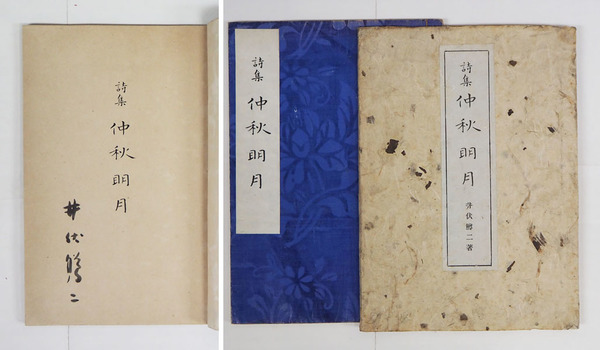 詩集
仲秋明月
井伏鱒二
詩集
仲秋明月
詩集
仲秋明月
井伏鱒二著